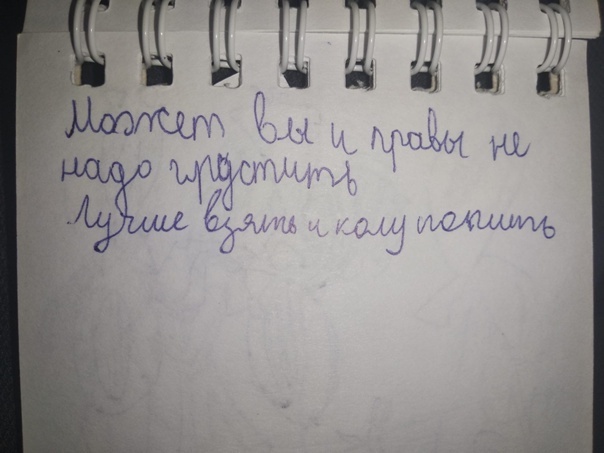 Может вы и правы не
надо грустить
Лучше взять и колу попить